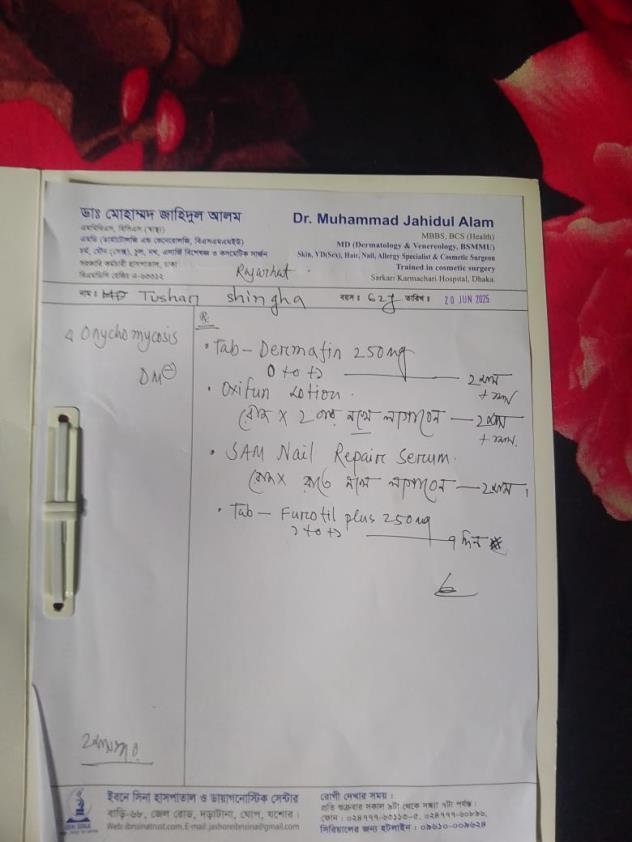 ডাঃ মোহাম্মদ জাহিদুল আলম
এমবিবিএস, বিসিএস (স্বাস্থ্য)
এমডি (ডার্মাটোলজি এন্ড ভেনেরোলজি, বিএসএমএমইউ)
চর্ম, যৌন (সেক্স), চুল, নখ, এলার্জি বিশেষজ্ঞ ও কসমেটিক সার্জন
সরকারি কর্মচারী হাসপাতাল, ঢাকা
Dr. Muhammad Jahidul Alam
MBBS, BCS (Health)
MD (Dermatology & Venereology, BSMMU)
Skin, VD(Sex), Hair, Nail, Allergy Specialist & Cosmetic Surgeon
Trained in cosmetic surgery
Sarkari Karmachari Hospital, Dhaka.
Rajarhat.
নাম: Tushar shingha বয়স: 62y তারিখ: 20 JUN 2025
Onychomycosis
DM⊖
R
• Tab - Dermafin 250mg
0+0+১ 2 মাস
• Oxifun Lotion.
রোজ x 2 বার নখে লাগাবেন — 2 মাস
• SAM Nail Repair Serum.
রোজ x রাতে নখে লাগাবেন — 2 মাস।
• Tab - Furotil plus 250mg
১+0+১ ৭ দিন
ইবনে সিনা হাসপাতাল ও ডায়াগনোস্টিক সেন্টার
বাড়ি-৬৮, জেল রোড, দড়াটানা, ঘোপ, যশোর।
Web: ibnsinatrust.com, E-mail: jashoreibnsina@gmail.com
রোগী দেখার সময় :
প্রতি শুক্রবার সকাল ৯টা থেকে সন্ধ্যা ৭টা পর্যন্ত।
সিরিয়ালের জন্য হটলাইন : ০৯৬১০-০০৯৬২৪